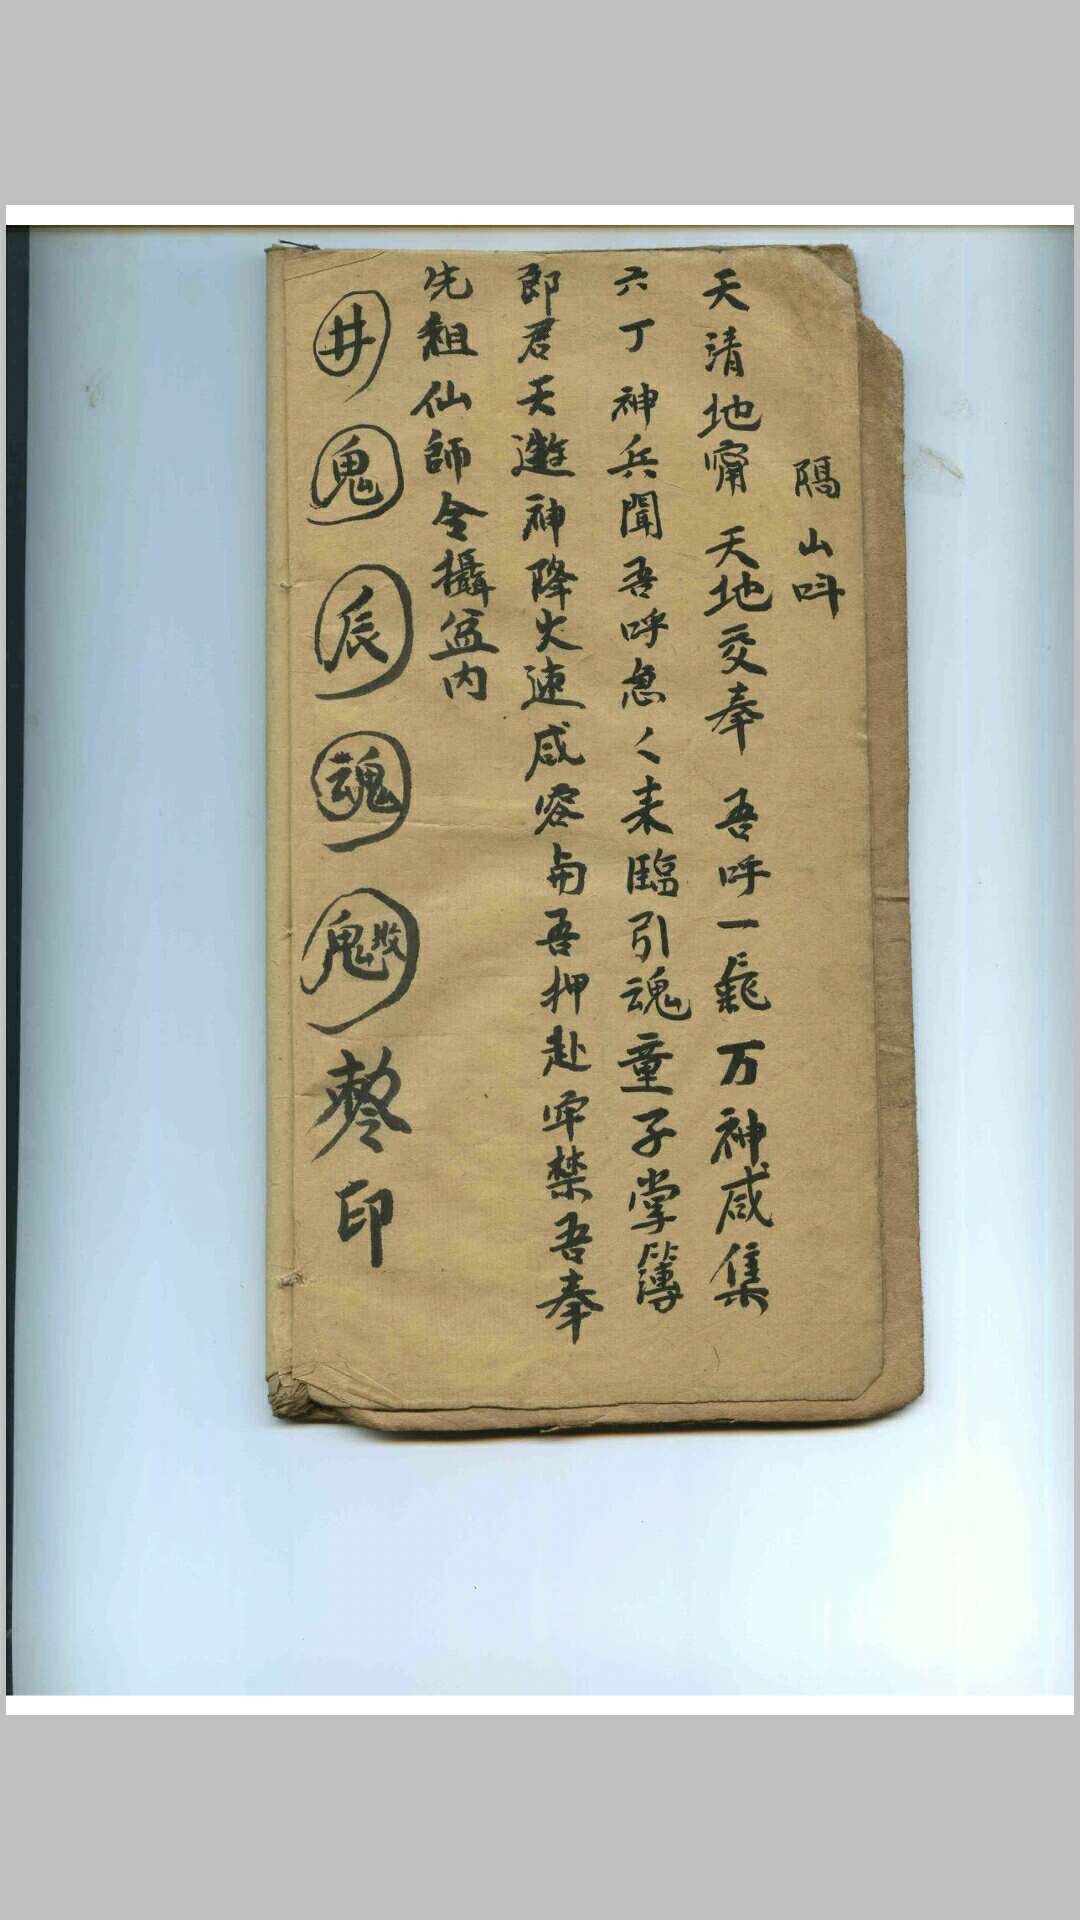 隔山呌
天清地甯 天地交奉 吾呼一声万神咸集
六丁神兵聞吾呼急く来臨引魂童子掌簿
郎君天遊神降火速咸容与吾押赴牢禁吾奉
先祖仙師令攝盆内
井 鬼 辰 魂 印